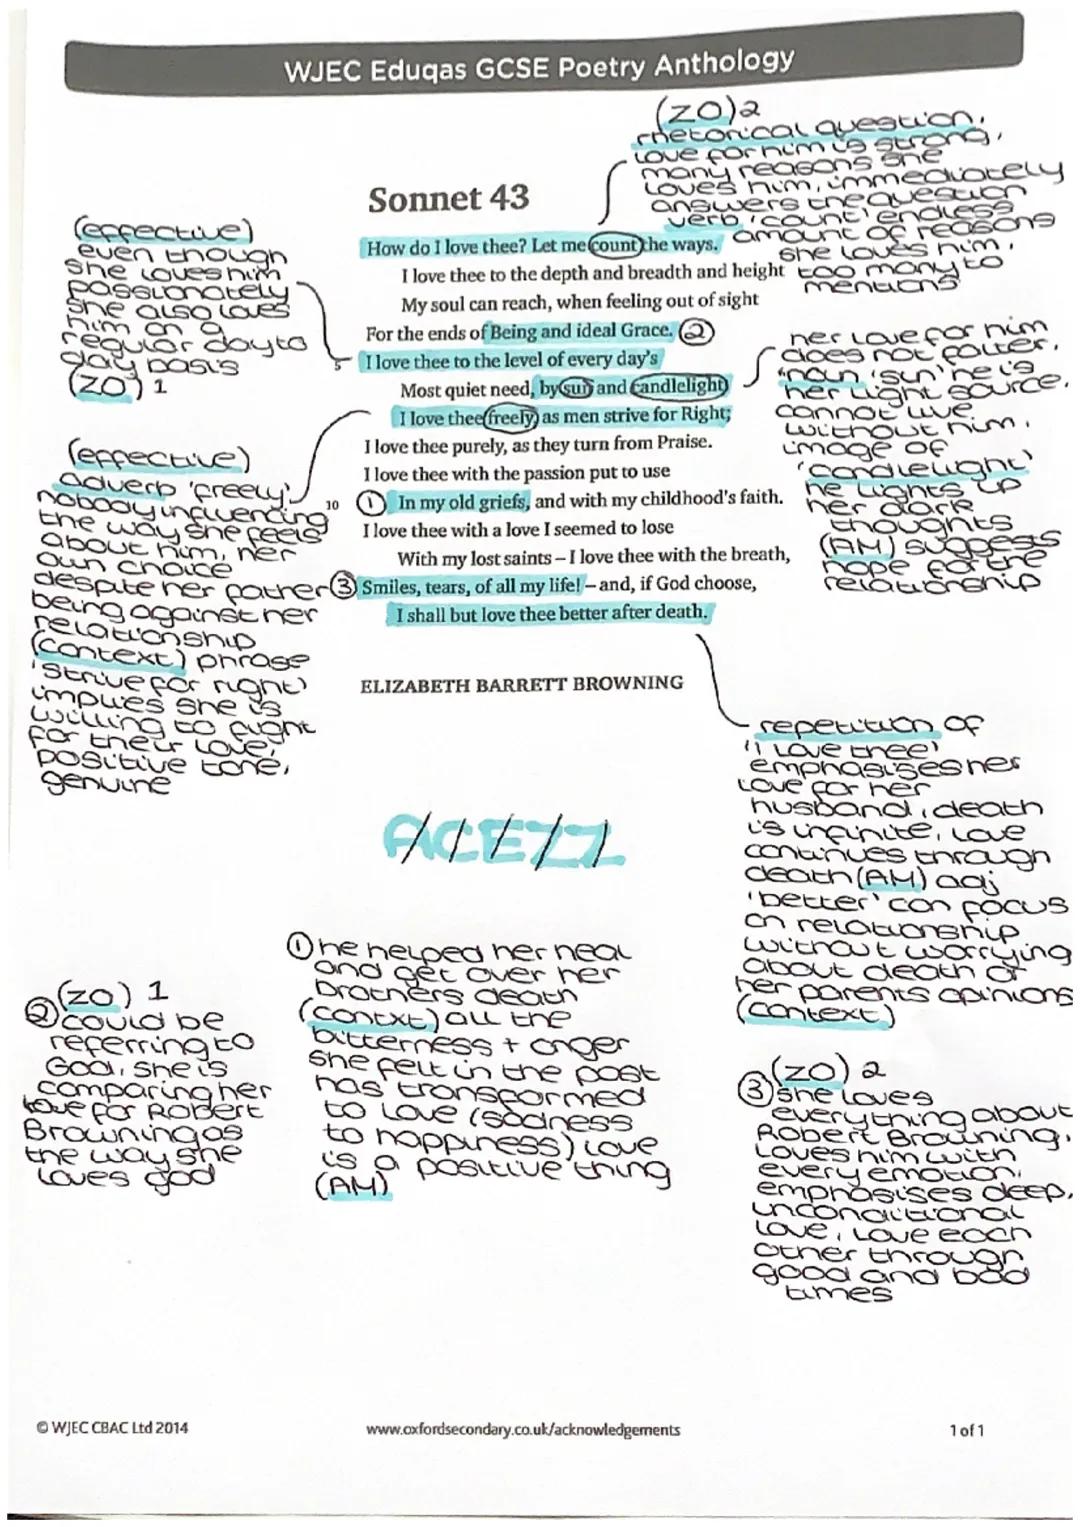 WJEC Eduqas GCSE Poetry Anthology
(ZO)2
rhetorical question,
love for him is strong,
many reasons she
loves him, immediately
answers the question
verb 'count' endless
amount of reasons
she loves him,
too many to
mentions
Sonnet 43
How do I love thee? Let me count the ways.
I love thee to the depth and breadth and height
My soul can reach, when feeling out of sight
For the ends of Being and ideal Grace. (2)
5 I love thee to the level of every day's
Most quiet need, by sun and candlelight;
I love thee freely, as men strive for Right;
I love thee purely, as they turn from Praise.
I love thee with the passion put to use
10 (1) In my old griefs, and with my childhood's faith.
I love thee with a love I seemed to lose
With my lost saints – I love thee with the breath,
(3) Smiles, tears, of all my life! – and, if God choose,
I shall but love thee better after death.
ELIZABETH BARRETT BROWNING
(effective)
even though
she loves him
passionately
she also loves
him on a
regular day to
day basis
(ZO) 1
(effective)
adverb 'freely'
nobody influencing
the way she feels
about him, her
own choice
despite her father
being against her
relationship
(context) phrase
'strive for right'
implies she is
willing to fight
for their love,
positive tone,
genuine
her love for him
does not falter,
noun 'sun' he is
her light source,
cannot live
without him,
image of
'candlelight'
he lights up
her dark
thoughts
(AM) suggests
hope for the
relationship
repetition of
'I love thee'
emphasises her
love for her
husband, death
is infinite, love
continues through
death (AM) adj
'better' can focus
on relationship
without worrying
about death or
her parents opinions
(context)
ACEZZ
(1) he helped her heal
and get over her
brothers death
(contxt) all the
bitterness + anger
she felt in the past
has transformed
to love (sadness
to happiness) love
is a positive thing
(AM)
(ZO) 1
(2) could be
referring to
God, she is
comparing her
love for Robert
Browning as
the way she
loves god
(ZO) 2
(3) she loves
everything about
Robert Browning,
loves him with
every emotion,
emphasises deep,
unconditional
love, love each
other through
good and bad
times
© WJEC CBAC Ltd 2014
www.oxfordsecondary.co.uk/acknowledgements
1 of 1